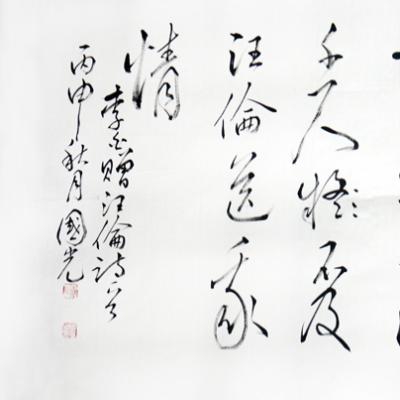 千尺不及
汪倫送我
情
李白贈汪倫詩一首
丙申秋月國光